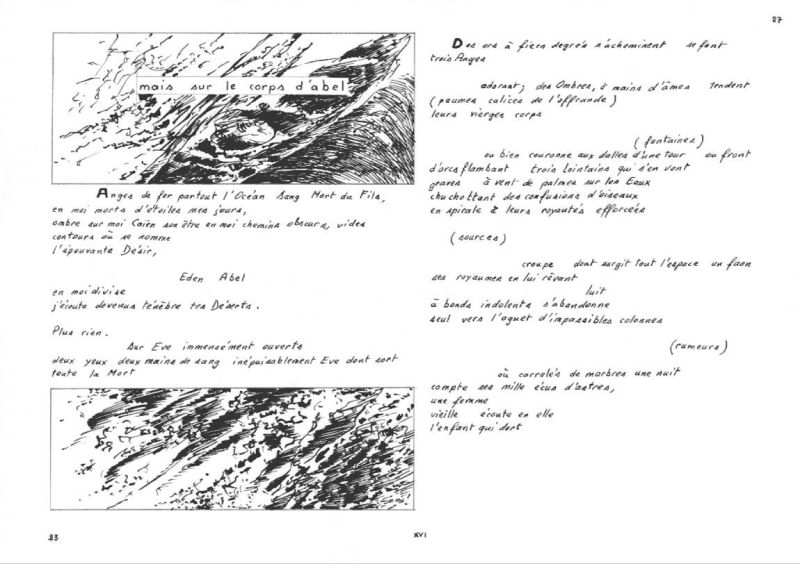 mais sur le corps d'abel
Anges de fer partout l'Océan Sang Mort du Fils,
en moi morts d'étoiles mes jours,
ombre sur moi Caïn son être en moi chemins obscurs, vides
contours où se nomme
l'épouvante Désir,
Eden Abel
en moi divise
j'écoute devenus ténèbre tes Déserts.
Plus rien.
sur Eve immensément ouverts
deux yeux deux mains de sang inépuisablement Eve dont sort
toute la Mort
23
XVI
27
Des ors à fiers degrés s'acheminent se font
trois Anges
adorant; des Ombres, à mains d'âmes tendent
(paumes calices de l'offrande)
leurs vierges corps
(fontaines)
ou bien couronne aux dalles d'une tour ou front
d'orcs flambant trois Lointains qui s'en vont
graves à vent de palmes sur les Eaux
chuchottant des confusions d'oiseaux
en spirale à leurs royautés efforcées
(sources)
croupe dont surgit tout l'espace un faon
ses royaumes en lui rêvant
luit
à bonds indolents s'abandonne
seul vers l'aguet d'impassibles colonnes
(rumeurs)
où carrelés de marbres une nuit
compte ses mille écus d'astres,
une femme
vieille écoute en elle
l'enfant qui dort